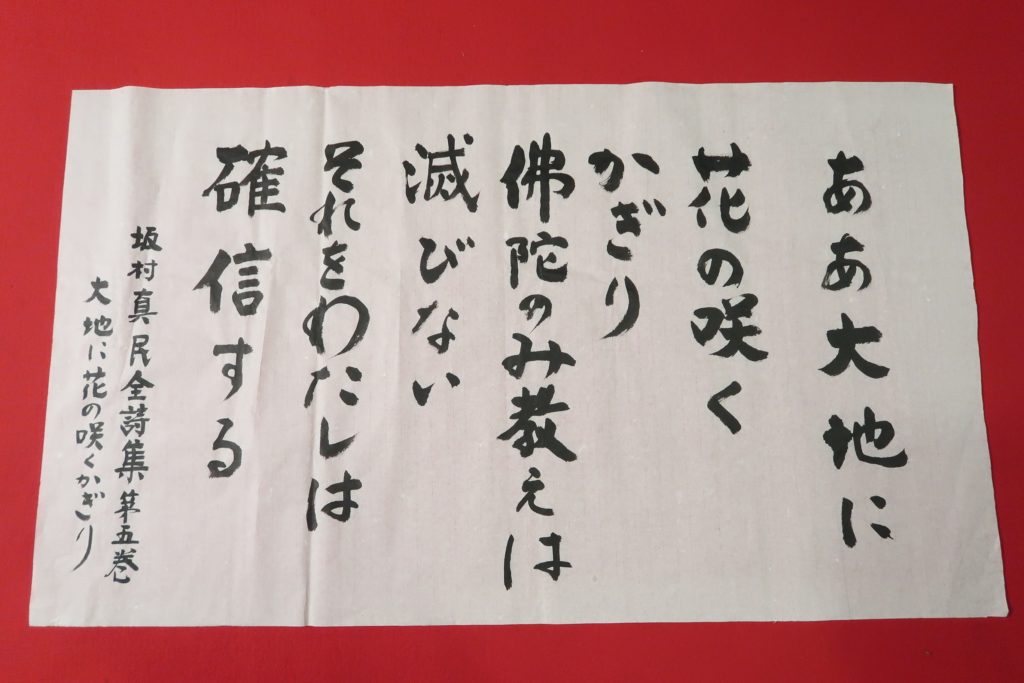 ああ大地に
花の咲く
かぎり
佛陀のみ教えは
滅びない
それをわたしは
確信する
坂村真民全詩集第五巻
大地に花の咲くかぎり